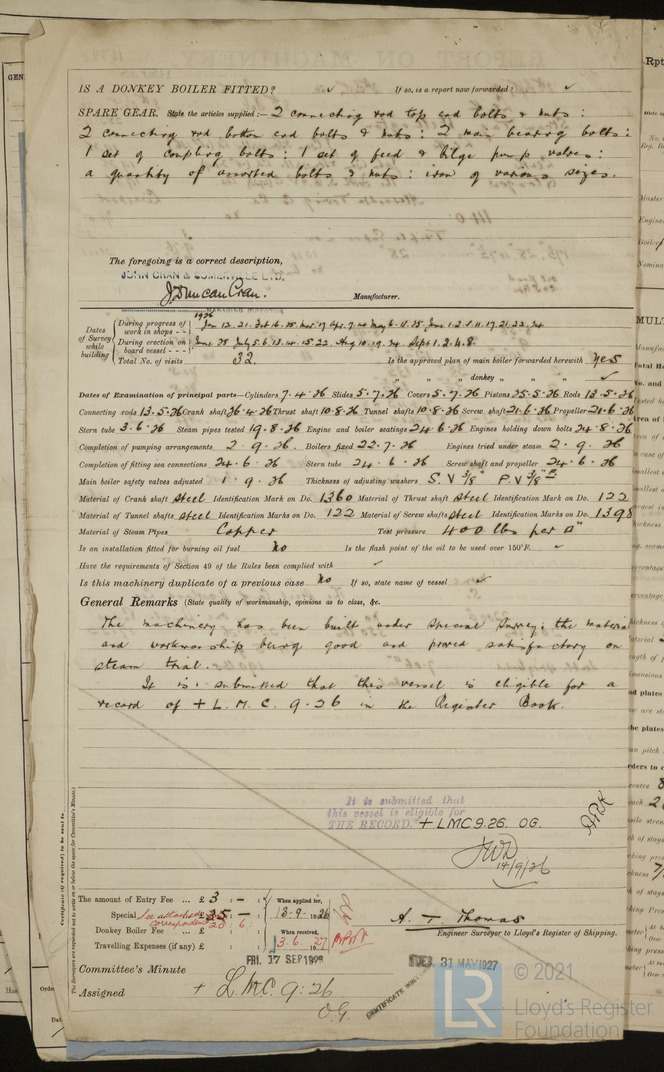 IS A DONKEY BOILER FITTED? ✓ If so, is a report now forwarded? ✓
SPARE GEAR. State the articles supplied:— 2 connecting rod top end bolts & nuts:
2 connecting rod bottom end bolts & nuts: 2 main bearing bolts:
1 set of coupling bolts: 1 set of feed & bilge pump valves:
a quantity of assorted bolts & nuts: iron of various sizes.
The foregoing is a correct description,
JOHN CRAN & SOMERVILLE LTD.
J. Duncan Cran. Manufacturer.
Dates of Survey while building
1926
During progress of work in shops - - Jan 12. 21. Feb 16. 25. Mar. 17 Apr. 7. 4. May 6. 13. 25. June 1. 2. 8. 11. 17. 21. 22. 24
During erection on board vessel - - - June 28 July 5. 6. 13. 14. 15. 22. Aug 10. 19. 24. Sept 1. 2. 4. 8.
Total No. of visits 32. Is the approved plan of main boiler forwarded herewith Yes
" " " donkey " " ✓
Dates of Examination of principal parts—Cylinders 7.4.26 Slides 5.7.26 Covers 5.7.26 Pistons 25.5.26 Rods 13.5.26
Connecting rods 13.5.26 Crank shaft 26.4.26 Thrust shaft 10.8.26 Tunnel shafts 10.8.26 Screw shaft 21.6.26 Propeller 21.6.26
Stern tube 3.6.26 Steam pipes tested 19.8.26 Engine and boiler seatings 24.6.26 Engines holding down bolts 24.8.26
Completion of pumping arrangements 2.9.26. Boilers fixed 22.7.26 Engines tried under steam 2.9.26
Completion of fitting sea connections 24.6.26 Stern tube 24.6.26 Screw shaft and propeller 24.6.26
Main boiler safety valves adjusted 1.9.26 Thickness of adjusting washers S.V 3/8" P.V 3/8"
Material of Crank shaft Steel Identification Mark on Do. 1360 Material of Thrust shaft Steel Identification Mark on Do. 122
Material of Tunnel shafts Steel Identification Marks on Do. 122 Material of Screw shafts Steel Identification Marks on Do. 1398
Material of Steam Pipes Copper Test pressure 400 lbs per □"
Is an installation fitted for burning oil fuel No Is the flash point of the oil to be used over 150°F. ✓
Have the requirements of Section 49 of the Rules been complied with ✓
Is this machinery duplicate of a previous case No If so, state name of vessel ✓
General Remarks (State quality of workmanship, opinions as to class, &c.
The machinery has been built under Special Survey: the material
and workmanship being good and proved satisfactory on
steam trial.
It is submitted that this vessel is eligible for a
record of + L.M.C. 9.26 in the Register Book.
It is submitted that
this vessel is eligible for
THE RECORD. + LMC 9.26. OG.
14/9/26
The amount of Entry Fee ... £ 3 : - : When applied for,
Special ... £ 35 : - 13.9.1926
See attached correspondence 20 : 6
Donkey Boiler Fee ... £ : : When received,
Travelling Expenses (if any) £ : : 3.6.27
A. T. Thomas
Engineer Surveyor to Lloyd's Register of Shipping.
FRI. 17 SEP 1926
TUES. 31 MAY 1927
Committee's Minute
Assigned + L.M.C. 9.26
O.G.
CERTIFICATE
Certificate (if required) to be sent to
The Surveyors are requested not to write on or below the space for Committee's Minute.
© 2021
Lloyd's Register
Foundation
LR
Rpt
MULT